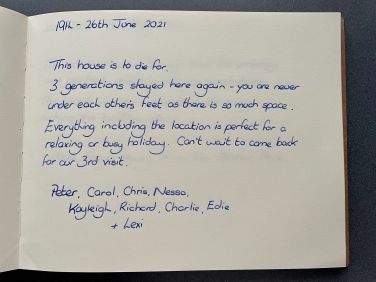 19th - 26th June 2021
This house is to die for.
3 generations stayed here again - you are never
under each others feet as there is so much space.
Everything including the location is perfect for a
relaxing or busy holiday. Can't wait to come back
for our 3rd visit.
Peter, Carol, Chris, Nessa,
Kayleigh, Richard, Charlie, Edie
+ Lexi